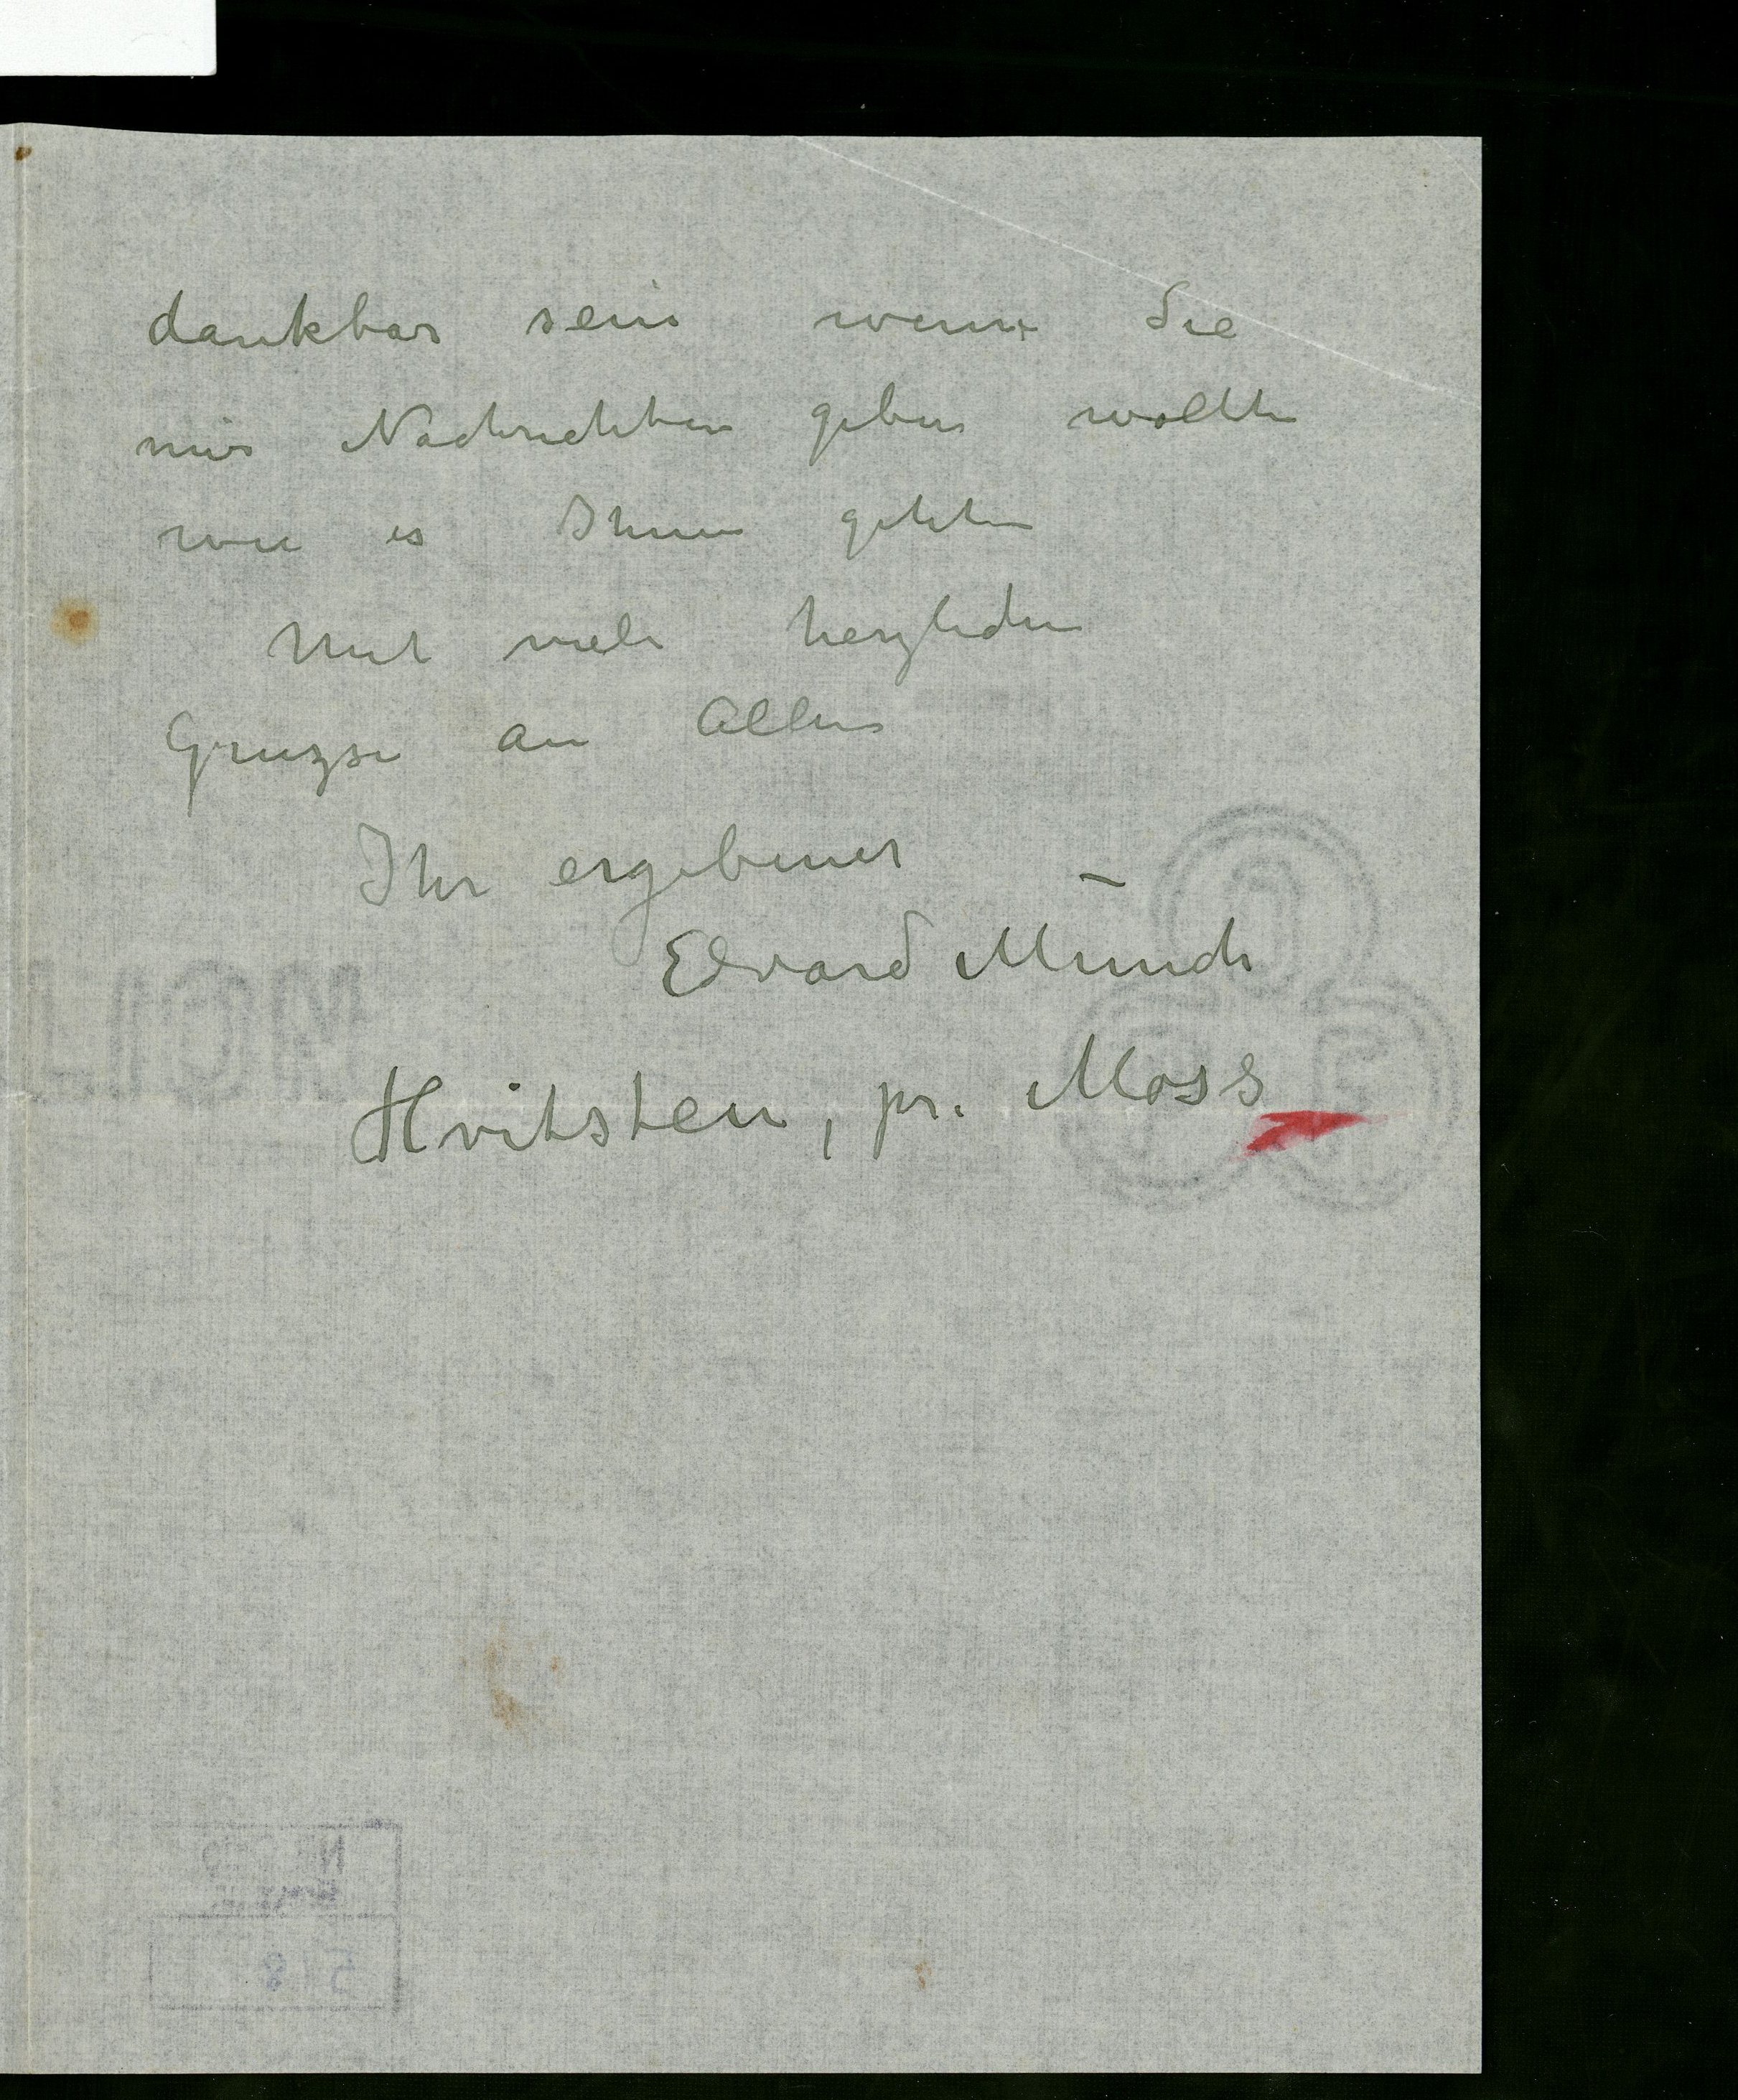 dankbar sein wenn Sie
mir Nachrichten geben wollten
wie es Ihnen gehten
Mit viele herzlichen
Gruzse an Allen
Ihr ergebener
Edvard Munch
Hvitsten, pr. Moss